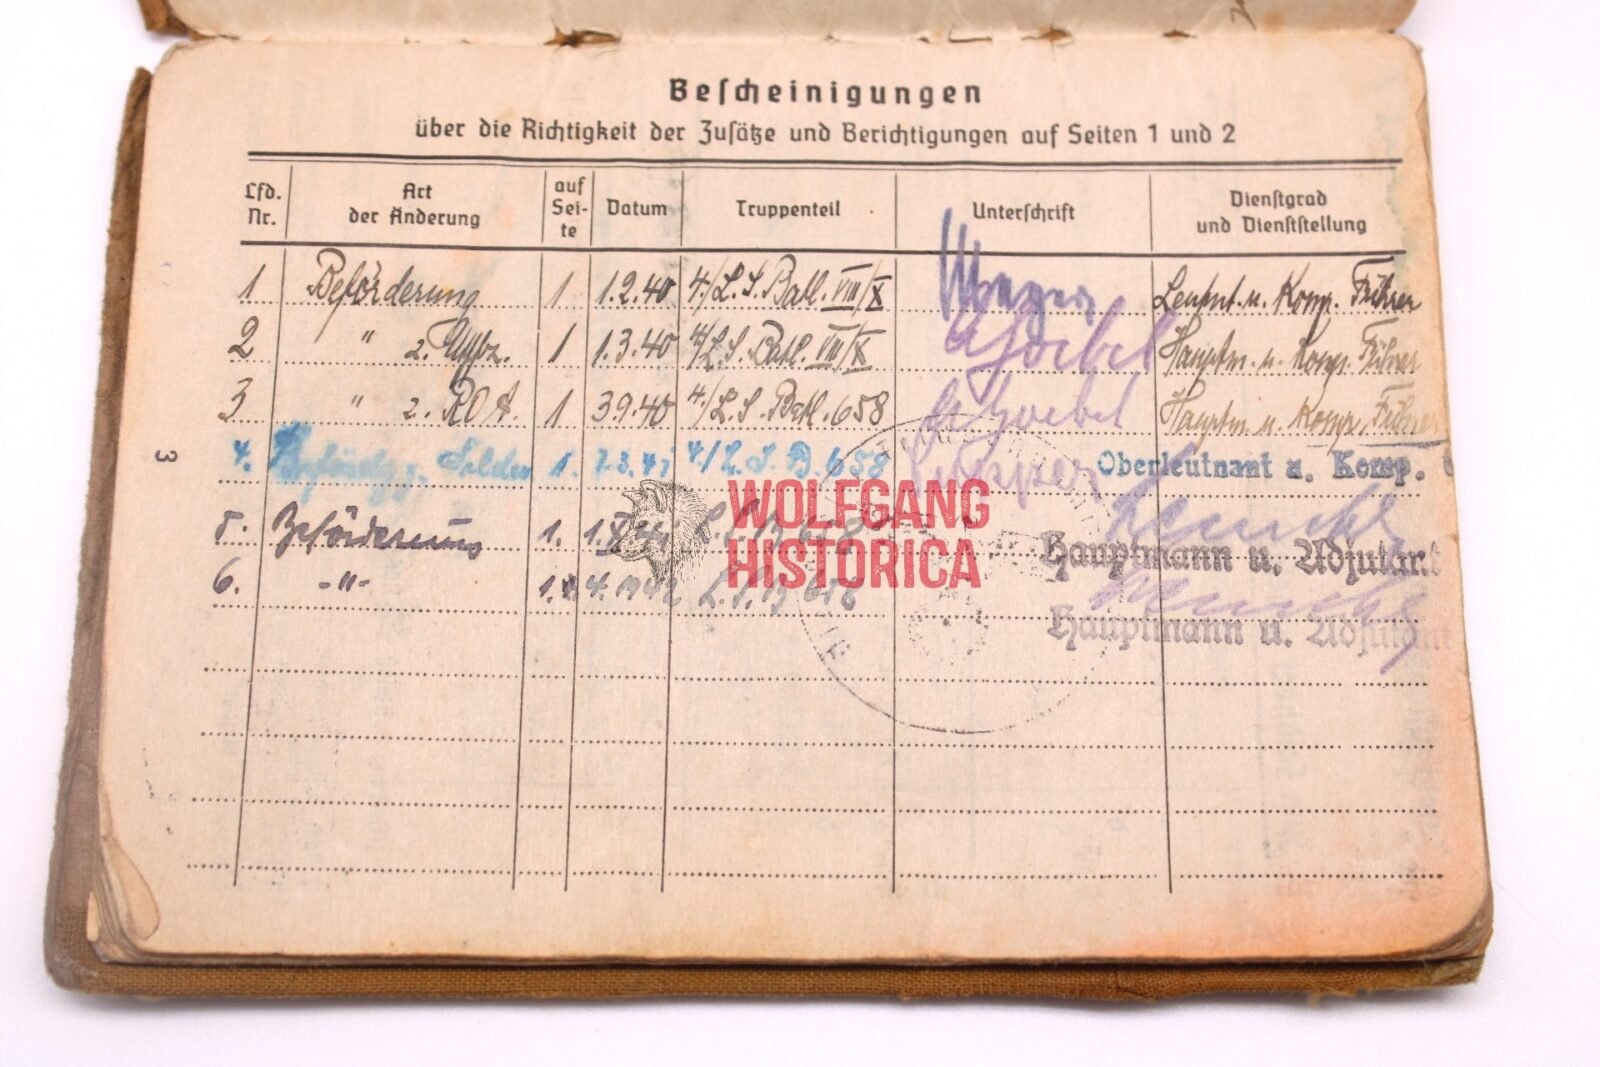 Bescheinigungen
über die Richtigkeit der Zusätze und Berichtigungen auf Seiten 1 und 2
Lfd. Nr. Art der Änderung auf Sei- te Datum Truppenteil Unterschrift Dienstgrad und Dienststellung
1 Beförderung 1 1.2.40 4./L.S. Batl. VIII/X Meyer Leutnt. u. Komp. Führer
2 " z. Uffz. 1 1.3.40 4/L.S. Batl. VIII/X Hauptm. u. Komp. Führer
3 " z. ROA. 1 3.9.40 4./L.S. Batl. 658 Hauptm. u. Komp. Führer
4. 1. 4/L.S.B. 658 Oberleutnant u. Komp.
5. Beförderung 1. L.S.B 658 Hauptmann u. Adjutant
6. -"- 1. 4.1942 L.S.B 658 Hauptmann u. Adjutant
3
WOLFGANG
HISTORICA